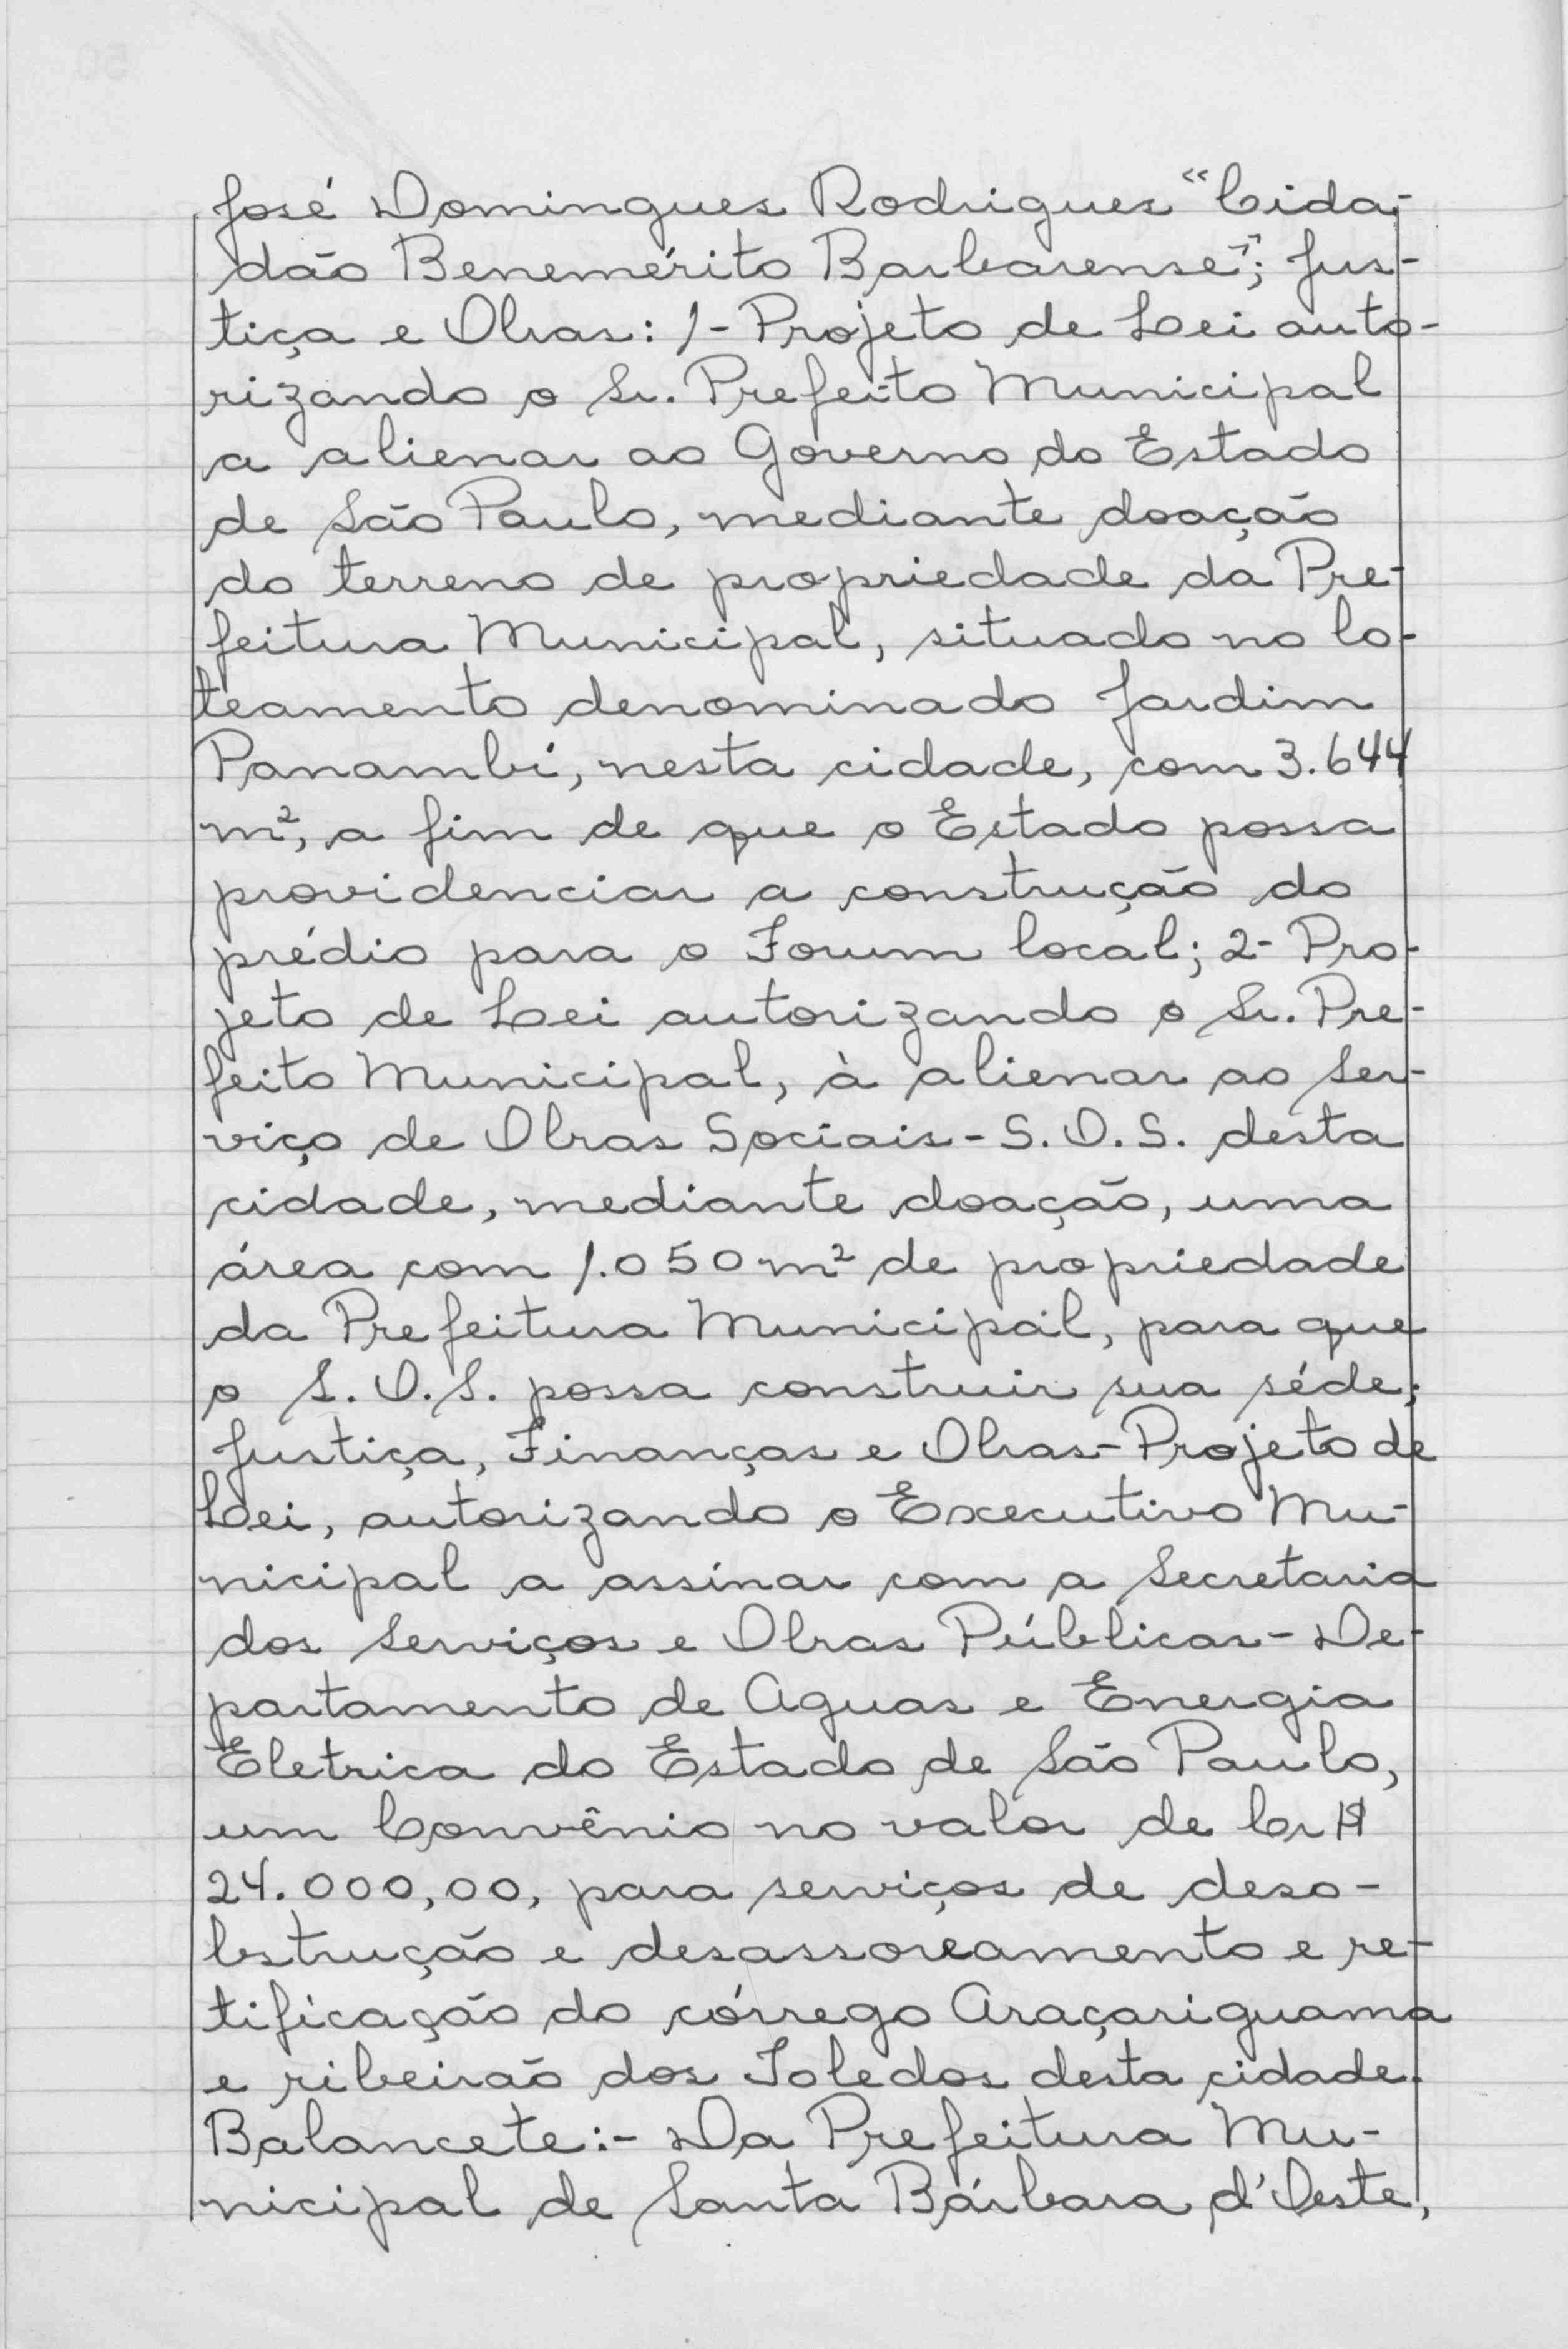 José Domingues Rodrigues "Cida-
dão Benemérito Barbarense"; Jus-
tiça e Obras: 1- Projeto de Lei auto-
rizando o Sr. Prefeito Municipal
a alienar ao Governo do Estado
de São Paulo, mediante doação
do terreno de propriedade da Pre-
feitura Municipal, situado no lo-
teamento denominado Jardim
Panambí, nesta cidade, com 3.644
m², a fim de que o Estado possa
providenciar a construção do
prédio para o Forum local; 2- Pro-
jeto de Lei autorizando o Sr. Pre-
feito Municipal, à alienar ao Ser-
viço de Obras Sociais - S.O.S. desta
cidade, mediante doação, uma
área com 1.050 m² de propriedade
da Prefeitura Municipal, para que
o S.O.S. possa construir sua séde;
Justiça, Finanças e Obras - Projeto de
Lei, autorizando o Executivo Mu-
nicipal a assinar com a Secretaria
dos Serviços e Obras Públicas - De-
partamento de Aguas e Energia
Eletrica do Estado de São Paulo,
um Convênio no valor de Cr$
24.000,00, para serviços de deso-
bstrução e desassoreamento e re-
tificação do córrego Araçariguama
e ribeirão dos Toledos desta cidade.
Balancete:- Da Prefeitura Mu-
nicipal de Santa Bárbara d'Oeste,